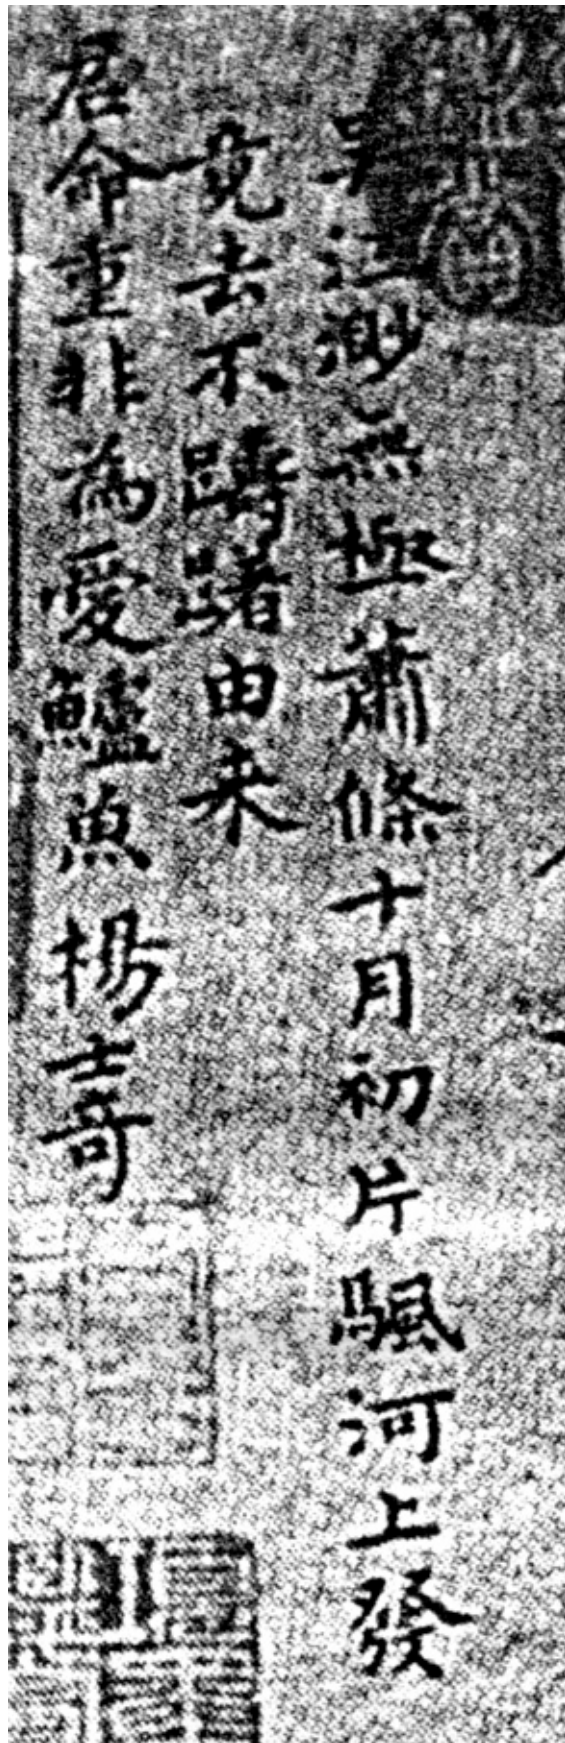 吳江渺無極蕭條十月初片颿河上發
竟去不躊躇由来
君命重非為愛鱸魚楊士奇